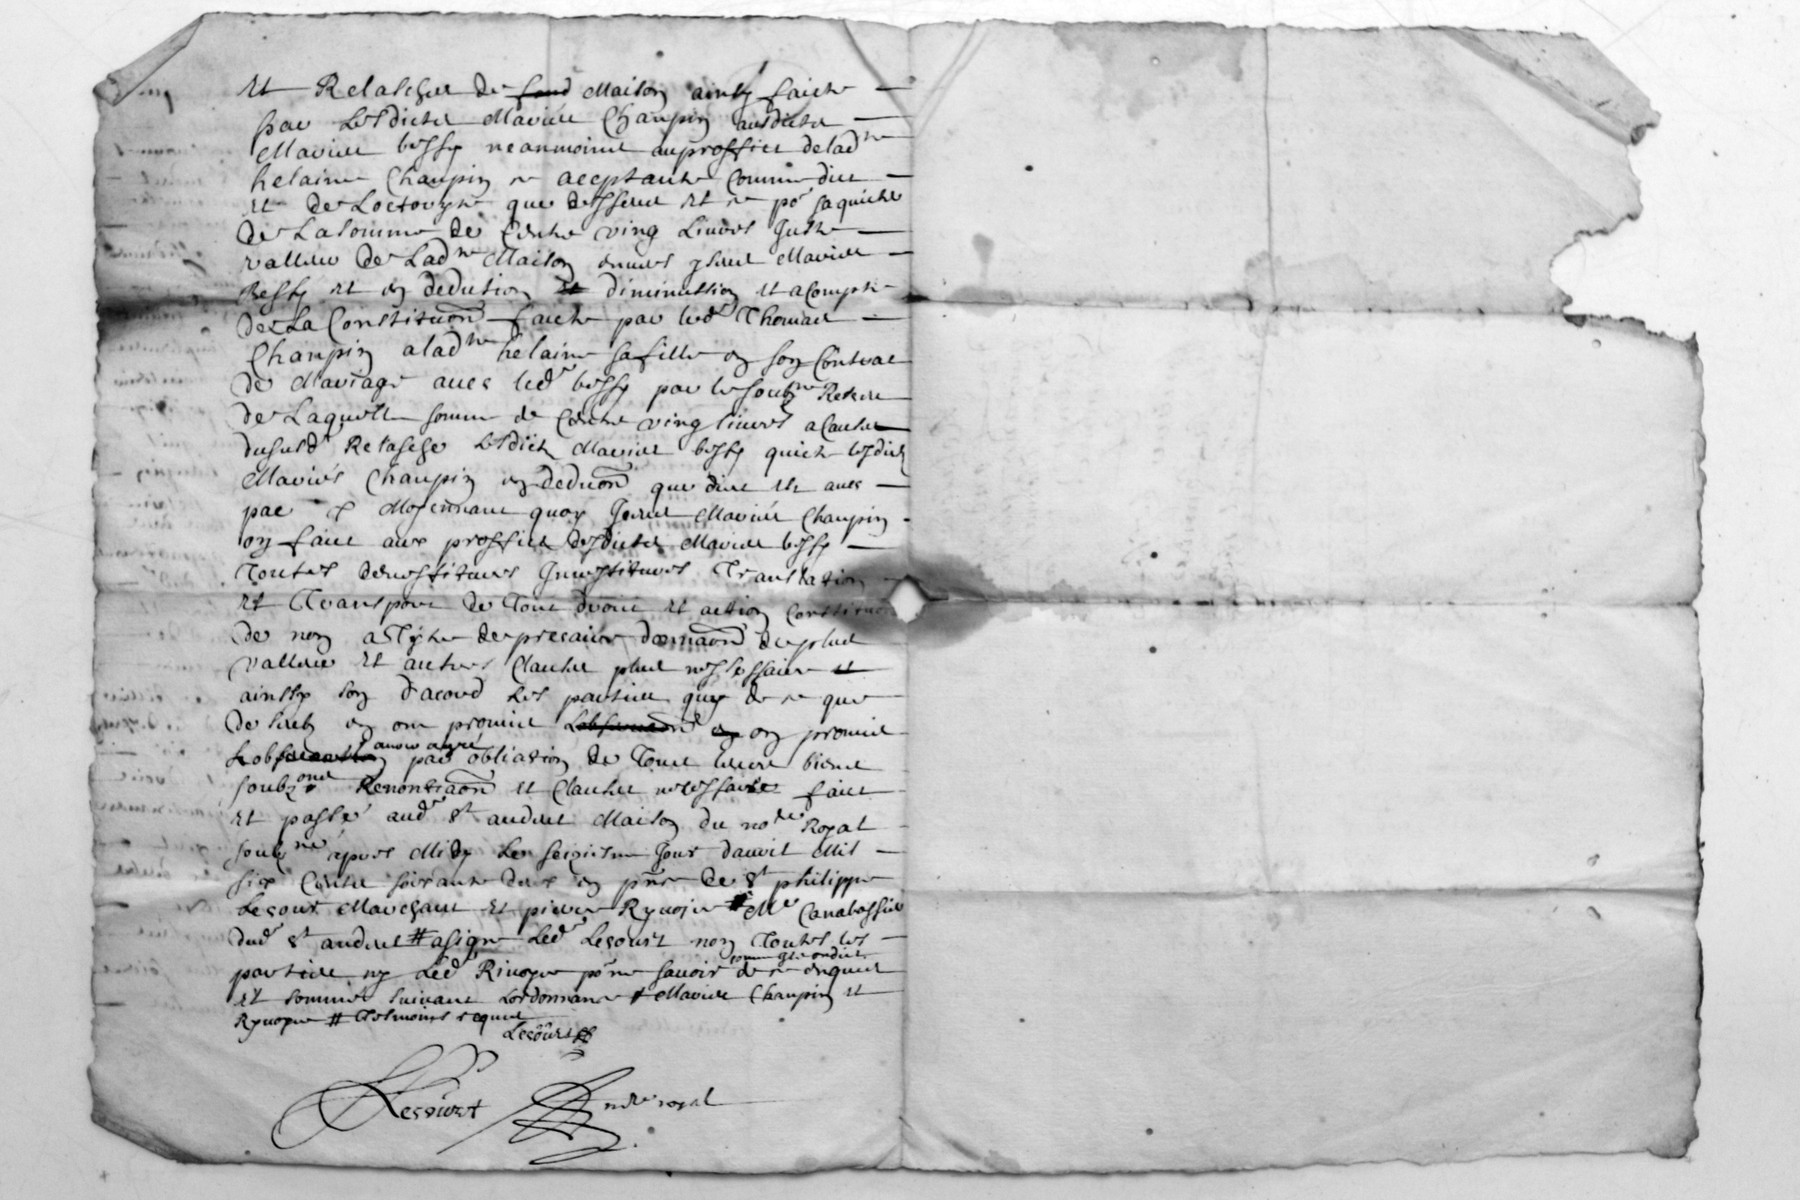 et Relascher de fond Maison ainsy faicte
par lesdictz Mariés Chaupin ausdictz
Mariés bessy neanmoins au proffict de lad ne
helaine Chaupin ce aceptante Comme dict
et de Loctroyste que dessus et ce po sa quicte
De La somme de Cents ving Livres Juste
valleur De Lad ne Maison envers yseux Mariés
Bessy et en dedution et diminution et acompte
De La Constituon faicte par led Thomas
Chaupin a lad ne helaine sa fille en son Contrat
De Mariage avec led bessy par le soubne Receu
De Laquelle somme de Cents ving livres a Cause
dususd Relasche lesdictz Mariés bessy quicte lesdictz
Mariés Chaupin en Deduon que dict et avec
pac et Moyennant quoy Iceux Mariés Chaupin
on faict aux proffict desdictz Mariés bessy
Toutes devestitures Investitures Translation
et Transport de Tout droict et action Constituon
De nom a Tiltre de precaire donnaon de plus
valleur et autres Clauses plus nessessaire et
ainssy son d'acord les parties quy de ce que
Dessus en ont promis Lobservaon en on promis
Lobservation avoir agréé par obliation de Tous leurs biens
soubz ons Renontiaon et Clauses necessaire faict
et passé aud St andrét Maison du no re Royal
soubne apres Midy Le seiziesme Jour davril Mil
six Centz soixante deux en pnce De St philippe
Lecourt Marchant et pierre Rynoyre # Me Canabassier
dud St andrét # asigne Led Lecourt non Toutes les
parties ny Led Rinoyre po ne savoir comme ils ondict de ce enquis
et sommés suivant Lordonnance # Mariés Chaupin et
Rynoyre # Tesmoins requis
Lecourt
Lecourt nore royal